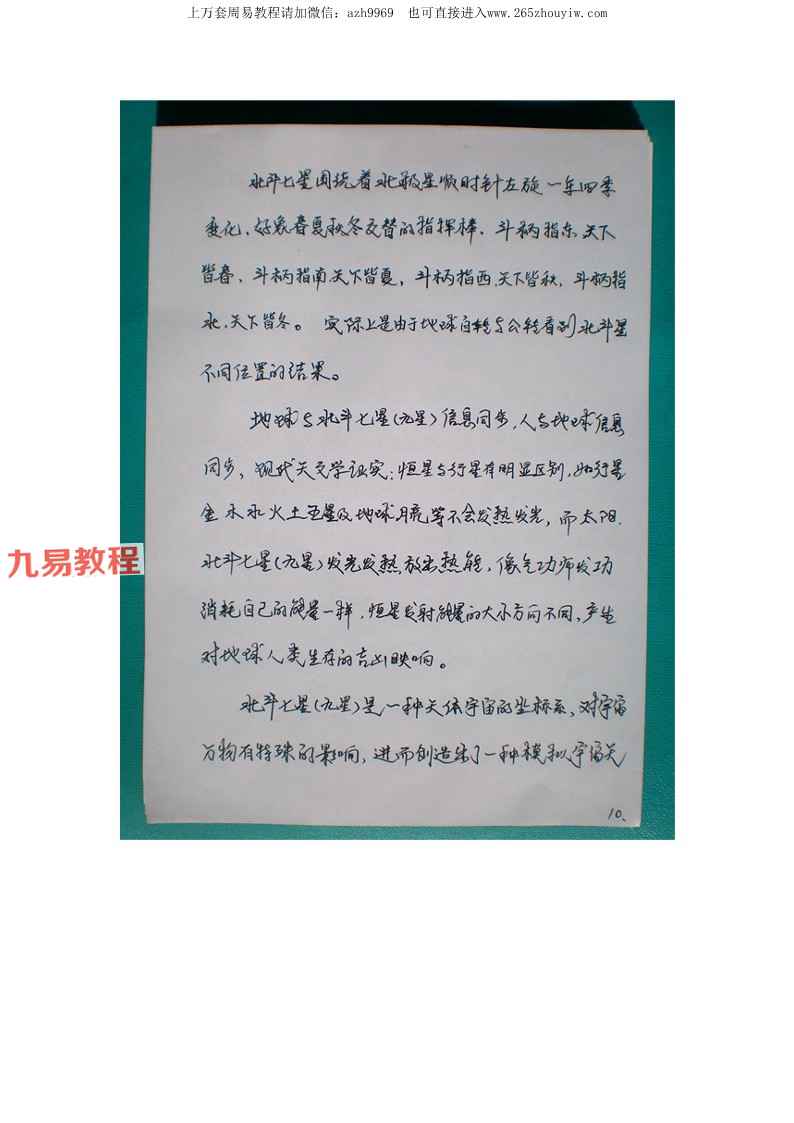 上万套周易教程请加微信：azh9969 也可直接进入www.265zhouyiw.com
北斗七星围绕着北极星顺时针左旋一年四季
变化，好象春夏秋冬交替的指挥棒，斗柄指东，天下
皆春，斗柄指南天下皆夏，斗柄指西，天下皆秋，斗柄指
北，天下皆冬。实际上是由于地球自转与公转看到北斗星
不同位置的结果。
地球与北斗七星(九星)信息同步，人与地球信息
同步，现代天文学证实：恒星与行星有明显区别，如行星
金木水火土五星及地球月亮等不会发热发光，而太阳，
北斗七星(九星)发光发热放出热能，像气功师发功
消耗自己的能量一样，恒星发射能量的大小方向不同，产生
对地球人类生存的吉凶映响。
北斗七星(九星)是一种天体宇宙的坐标系，对宇宙
万物有特殊的影响，进而创造出了一种模拟宇宙天
10、
九易教程